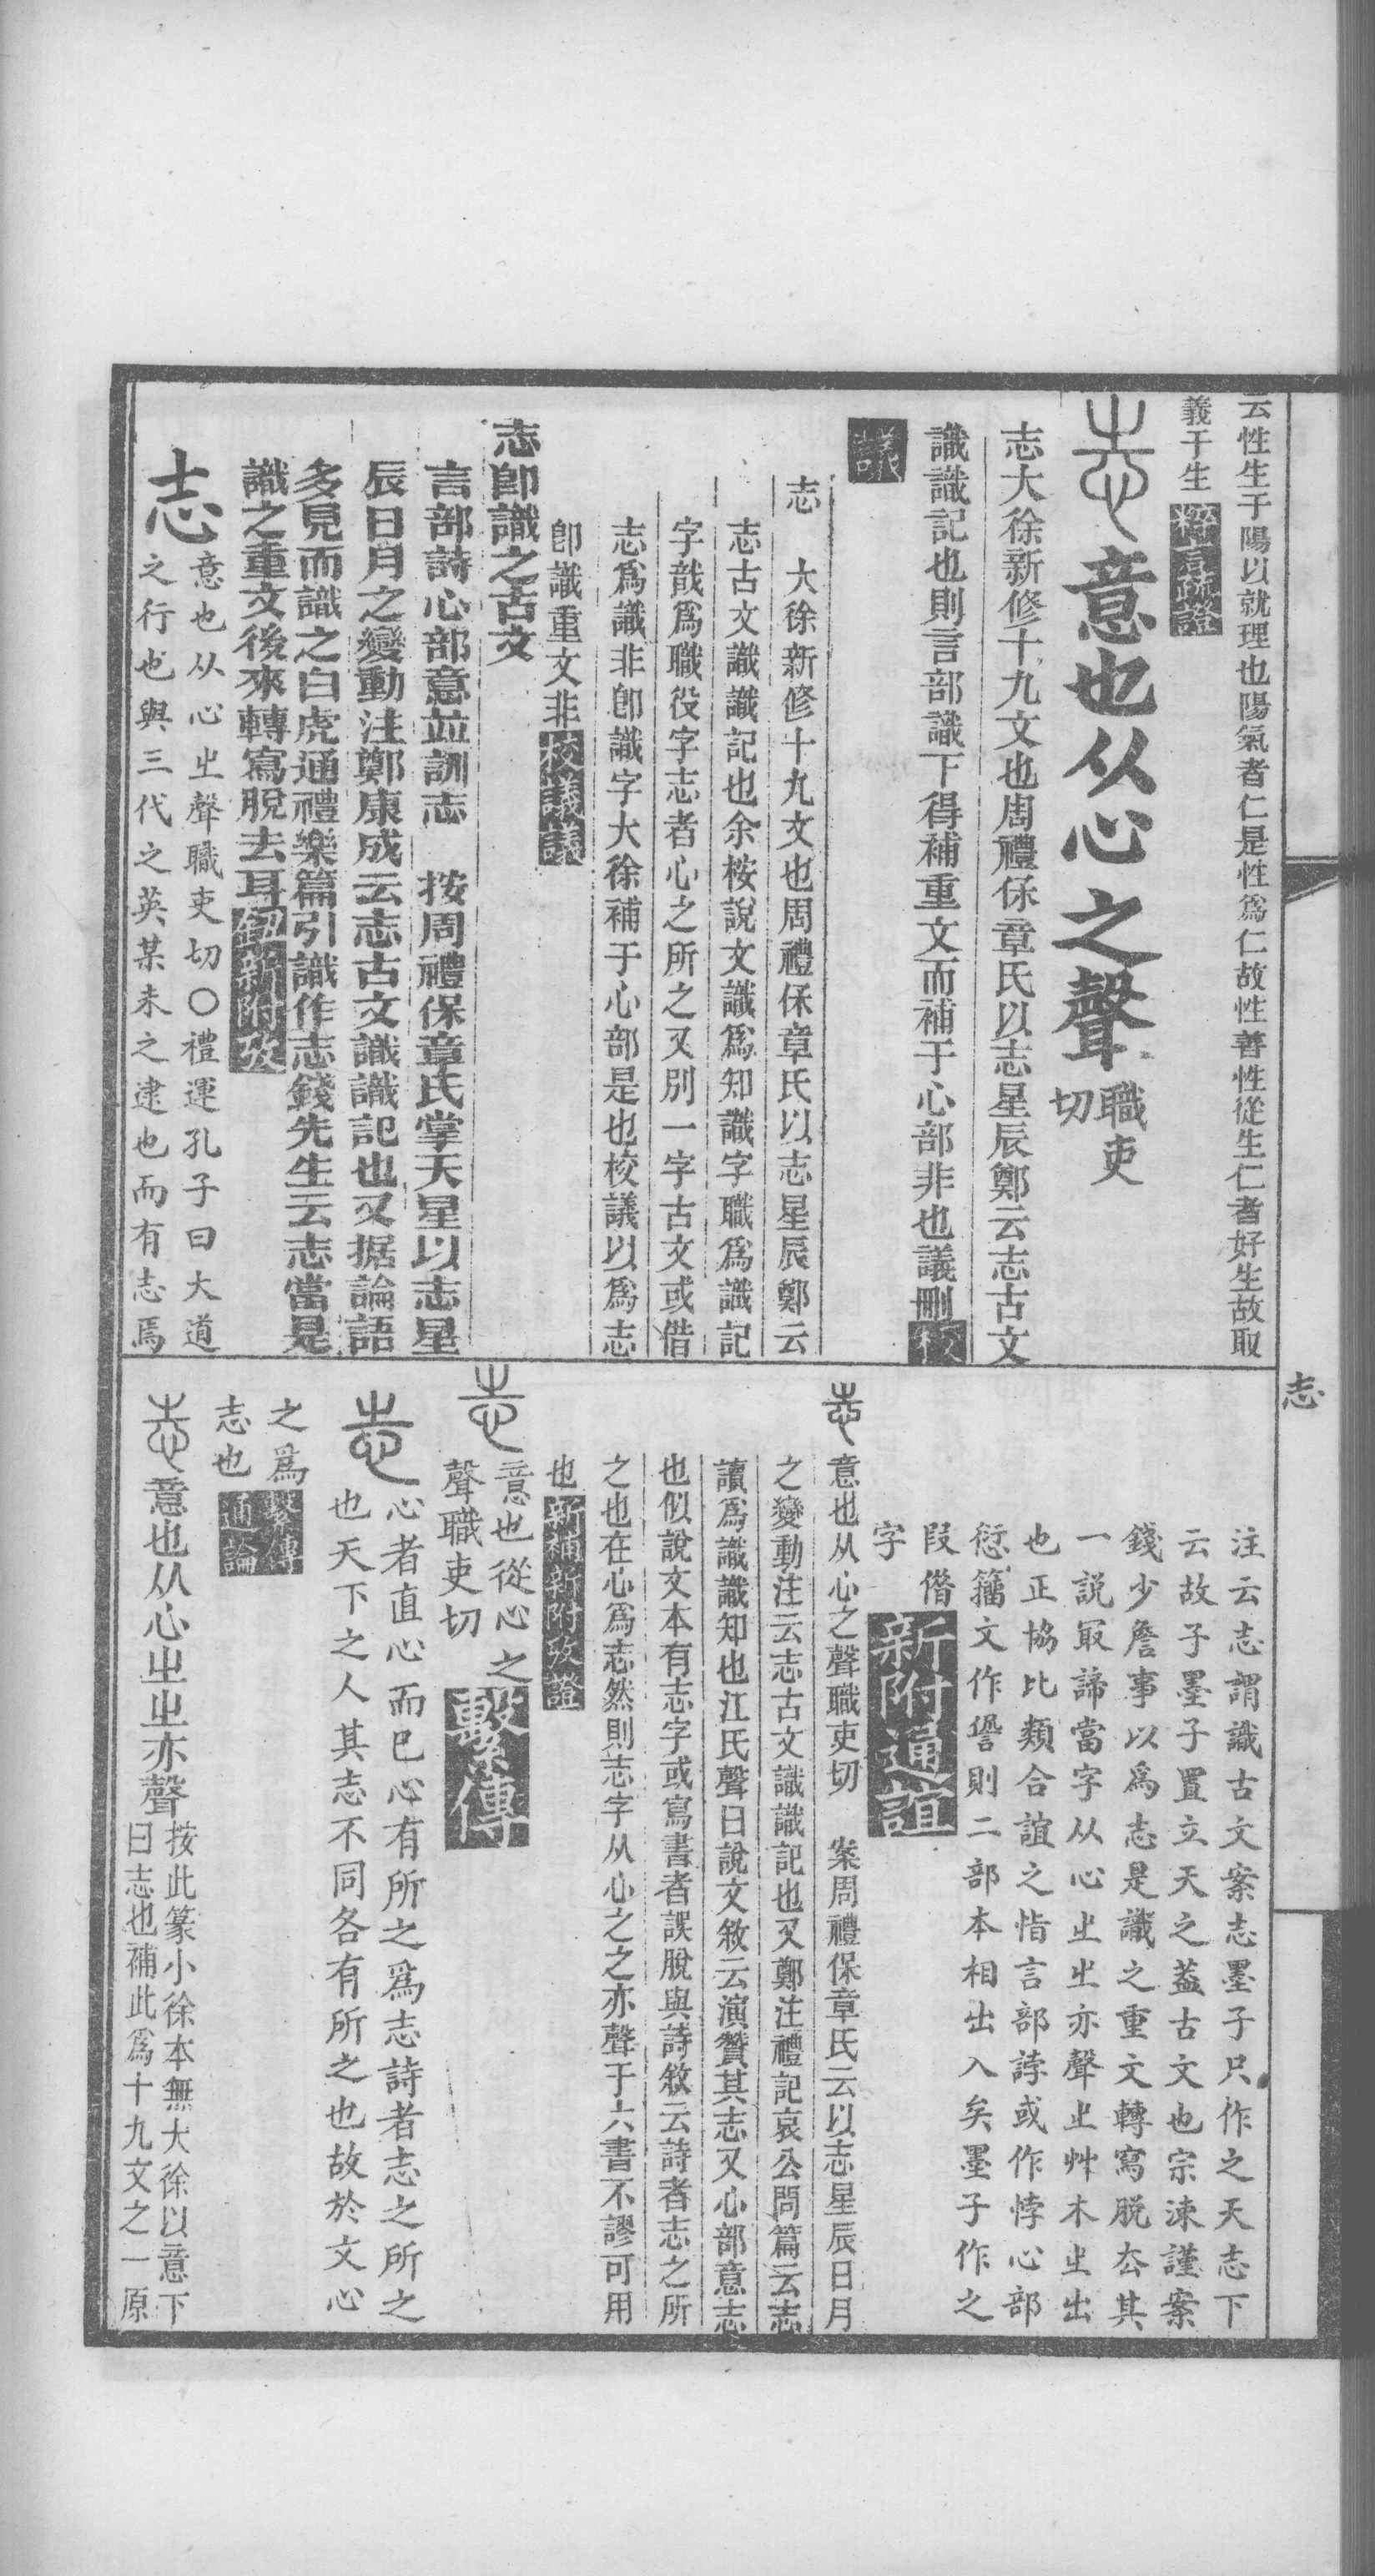 云性生于陽以就理也陽氣者仁是性爲仁故性善性從生仁者好生故取
義于生
志意也从心之聲職吏切
志大徐新修十九文也周禮保章氏以志星辰鄭云志古文
識識記也則言部識下得補重文而補于心部非也議刪校
議
志　大徐新修十九文也周禮保章氏以志星辰鄭云
志古文識識記也余桉說文識爲知識字職爲識記
字戠爲職役字志者心之所之又別一字古文或借
志爲識非卽識字大徐補于心部是也校議以爲志
卽識重文非校議議
志卽識之古文
言部詩心部意並訓志　按周禮保章氏掌天星以志星
辰日月之變動注鄭康成云志古文識識記也又据論語
多見而識之白虎通禮樂篇引識作志錢先生云志當是
識之重文後來轉寫脫去耳鈕新附攷
志意也从心㞢聲職吏切〇禮運孔子曰大道
之行也與三代之英某未之逮也而有志焉
志
注云志謂識古文案志墨子只作之天志下
云故子墨子置立天之葢古文也宗涑謹案
錢少詹事以爲志是識之重文轉寫脫厺其
一説冣諦當字从心㞢㞢亦聲㞢艸木㞢出
也正協比類合誼之恉言部誖或作悖心部
愆籀文作諐則二部本相出入矣墨子作之
叚偺
字新附通誼
志意也从心之聲職吏切　案周禮保章氏云以志星辰日月
之變動注云志古文識識記也又鄭注禮記哀公問篇云志
讀爲識識知也江氏聲曰說文敘云演贊其志又心部意志
也似說文本有志字或寫書者誤脫與詩敘云詩者志之所
之也在心爲志然則志字从心之之亦聲于六書不謬可用
也新補新附攷證
志意也從心之
聲職吏切繫傳
志心者直心而已心有所之爲志詩者志之所之
也天下之人其志不同各有所之也故於文心
之爲
志也繫傳通論
志意也从心㞢㞢亦聲按此篆小徐本無大徐以意下
曰志也補此爲十九文之一原